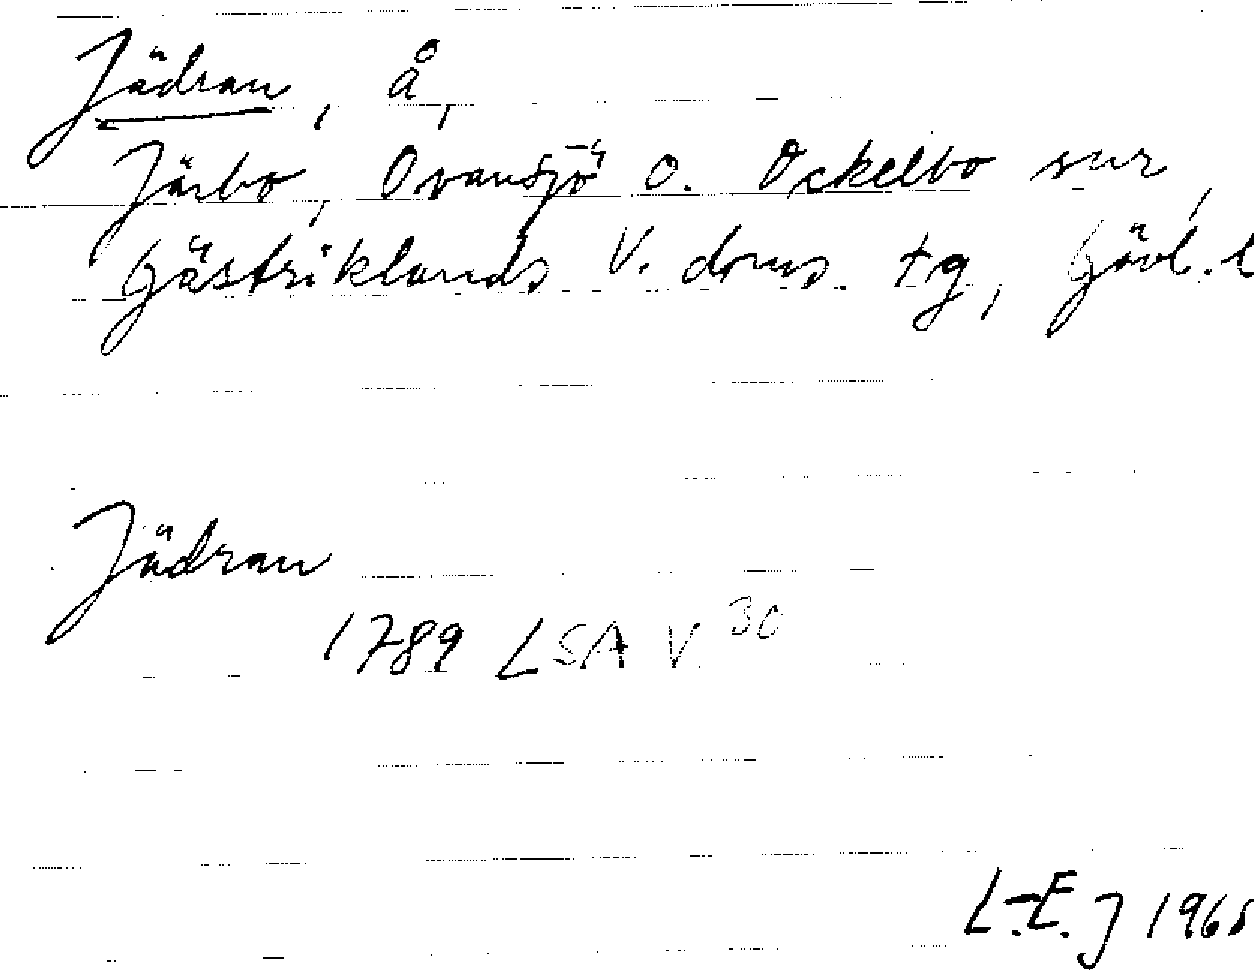 Jädran, å,
Järbo, Ovansjö o. Ockelbo snr,
Gästriklands V. doms. tg, Gävl. l
Jädran
1789 LSA V 30
L.-E. J